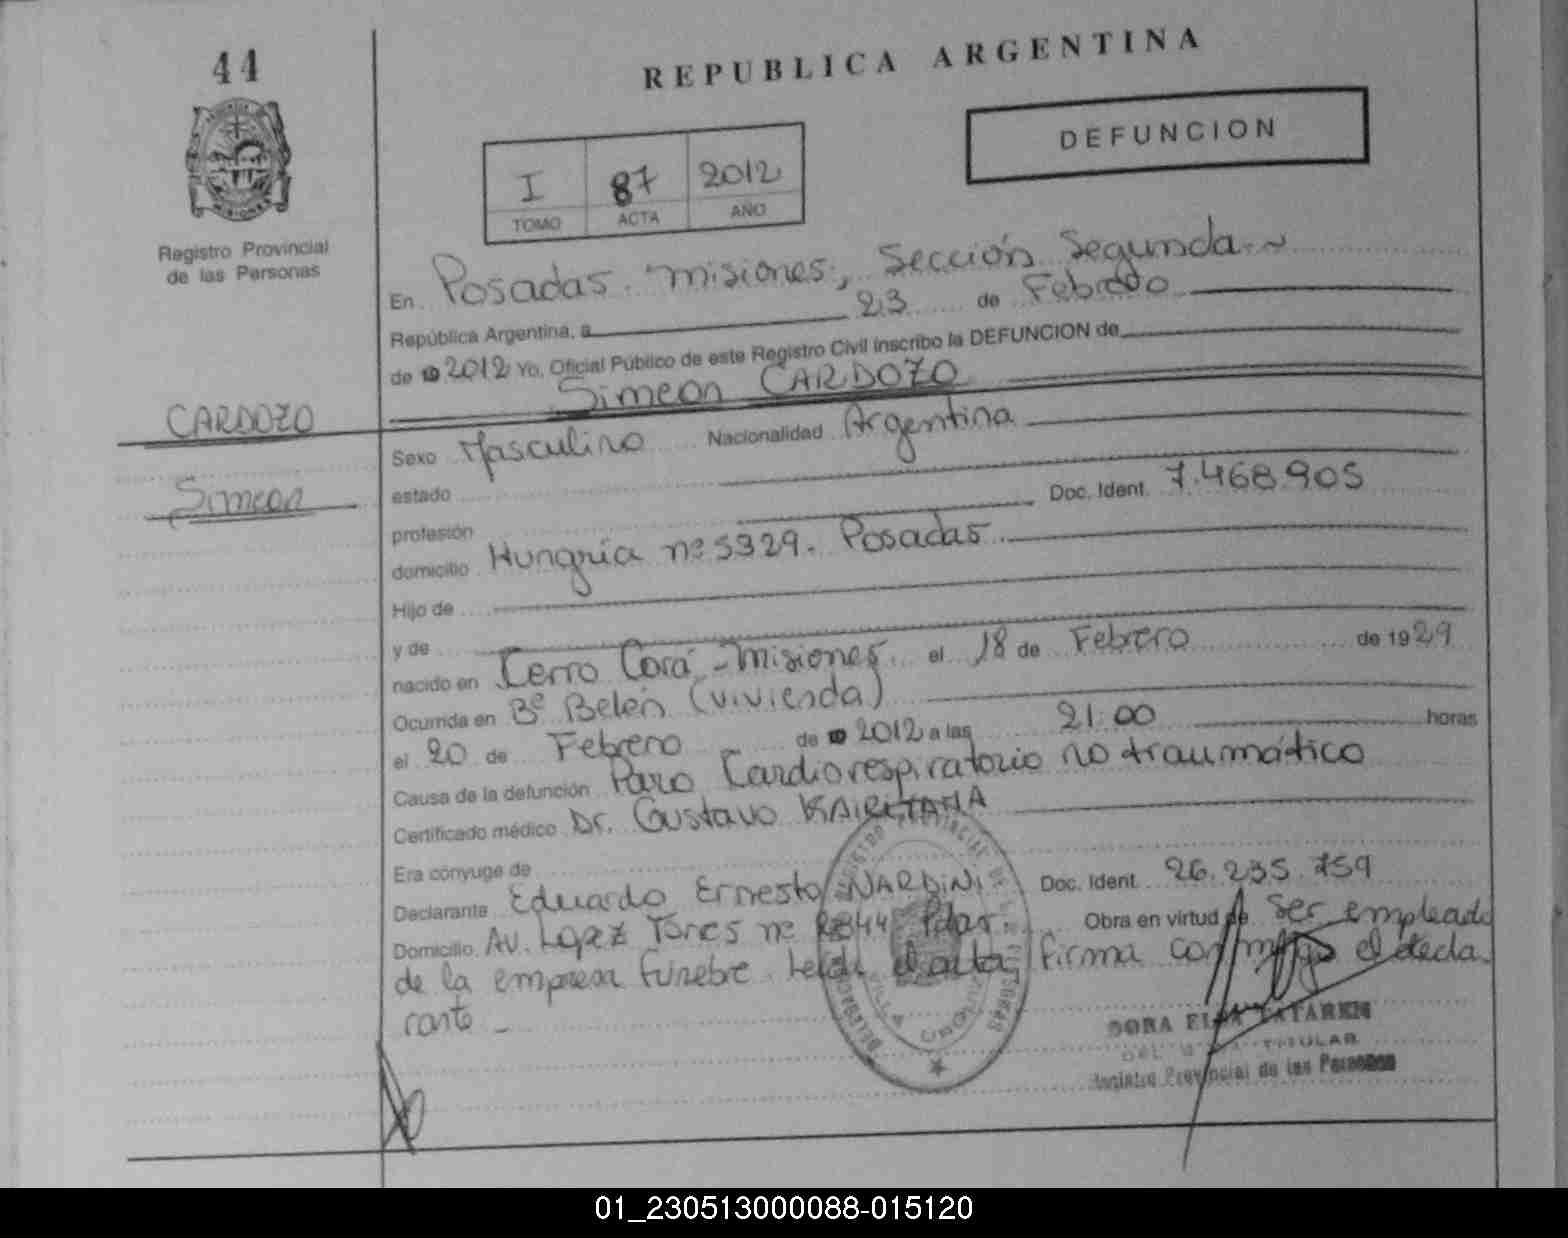 44
REPUBLICA ARGENTINA
DEFUNCION
I 87 2012
TOMO ACTA AÑO
Registro Provincial
de las Personas
En Posadas. Misiones, Sección Segunda.~
República Argentina, a 23 de Febrero
de 2012 Yo, Oficial Público de este Registro Civil inscribo la DEFUNCION de
Simeon CARDOZO
CARDOZO
Simeon
Sexo Masculino Nacionalidad Argentina
estado
profesión Doc. Ident. 7.468.905
domicilio Hungria nº 5329. Posadas
Hijo de
y de
nacido en Cerro Corá - Misiones el 18 de Febrero de 1929
Ocurrida en Bº Belén (vivienda)
el 20 de Febrero de 2012 a las 21:00 horas
Causa de la defunción Paro Cardiorespiratorio no traumático
Certificado médico Dr. Gustavo
Era cónyuge de
Declarante Eduardo Ernesto NARDINI Doc. Ident. 26.235.759
Domicilio Av. Lopez Torres nº Pdas. Obra en virtud de ser empleado
de la empresa fúnebre firma conmigo el decla
rante -
DORA
TITULAR
Registro Provincial de las Personas
01_230513000088-015120